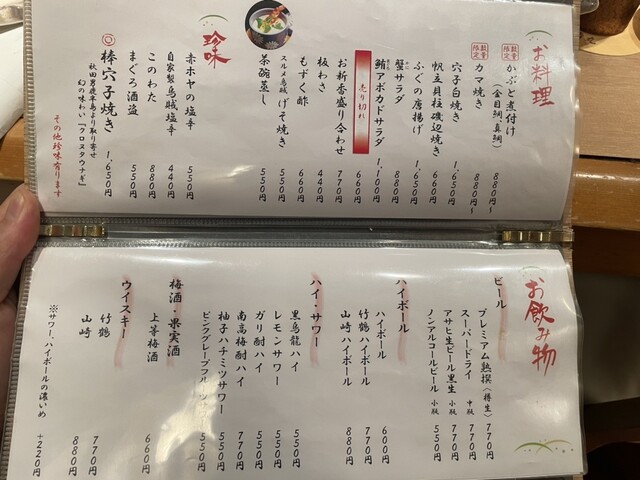 お料理
数量限定 かぶと煮付け 880円〜
(金目鯛・真鯛)
数量限定 カマ焼き 880円〜
穴子白焼き 1,650円
帆立貝柱磯辺焼き 660円
ふぐの唐揚げ 880円
蟹サラダ 880円
鮪アボカドサラダ 1,100円
売り切れ 660円
お新香盛り合わせ 770円
板わさ 440円
もずく酢 660円
スルメ烏賊げそ焼き 550円
茶碗蒸し 550円
珍味
赤ホヤの塩辛 550円
自家製烏賊塩辛 440円
このわた 880円
まぐろ酒盗 550円
棒穴子焼き 1,650円
秋田男鹿半島より取り寄せ
幻の味わい「クロヌタウナギ」
その他珍味有ります
お飲み物
ビール
プレミアム熟撰(樽生) 770円
スーパードライ 中瓶 770円
アサヒ生ビール黒生 小瓶 770円
ノンアルコールビール 小瓶 550円
ハイボール
ハイボール 600円
竹鶴ハイボール 770円
山崎ハイボール 880円
ハイ・サワー
黒烏龍ハイ 550円
レモンサワー 550円
ガリ酎ハイ 550円
南高梅酎ハイ 770円
柚子ハチミツサワー 550円
ピンクグレープフルーツ 550円
梅酒・果実酒
上等梅酒 660円
ウイスキー
竹鶴 770円
山崎 880円
※サワー、ハイボールの濃いめ +220円